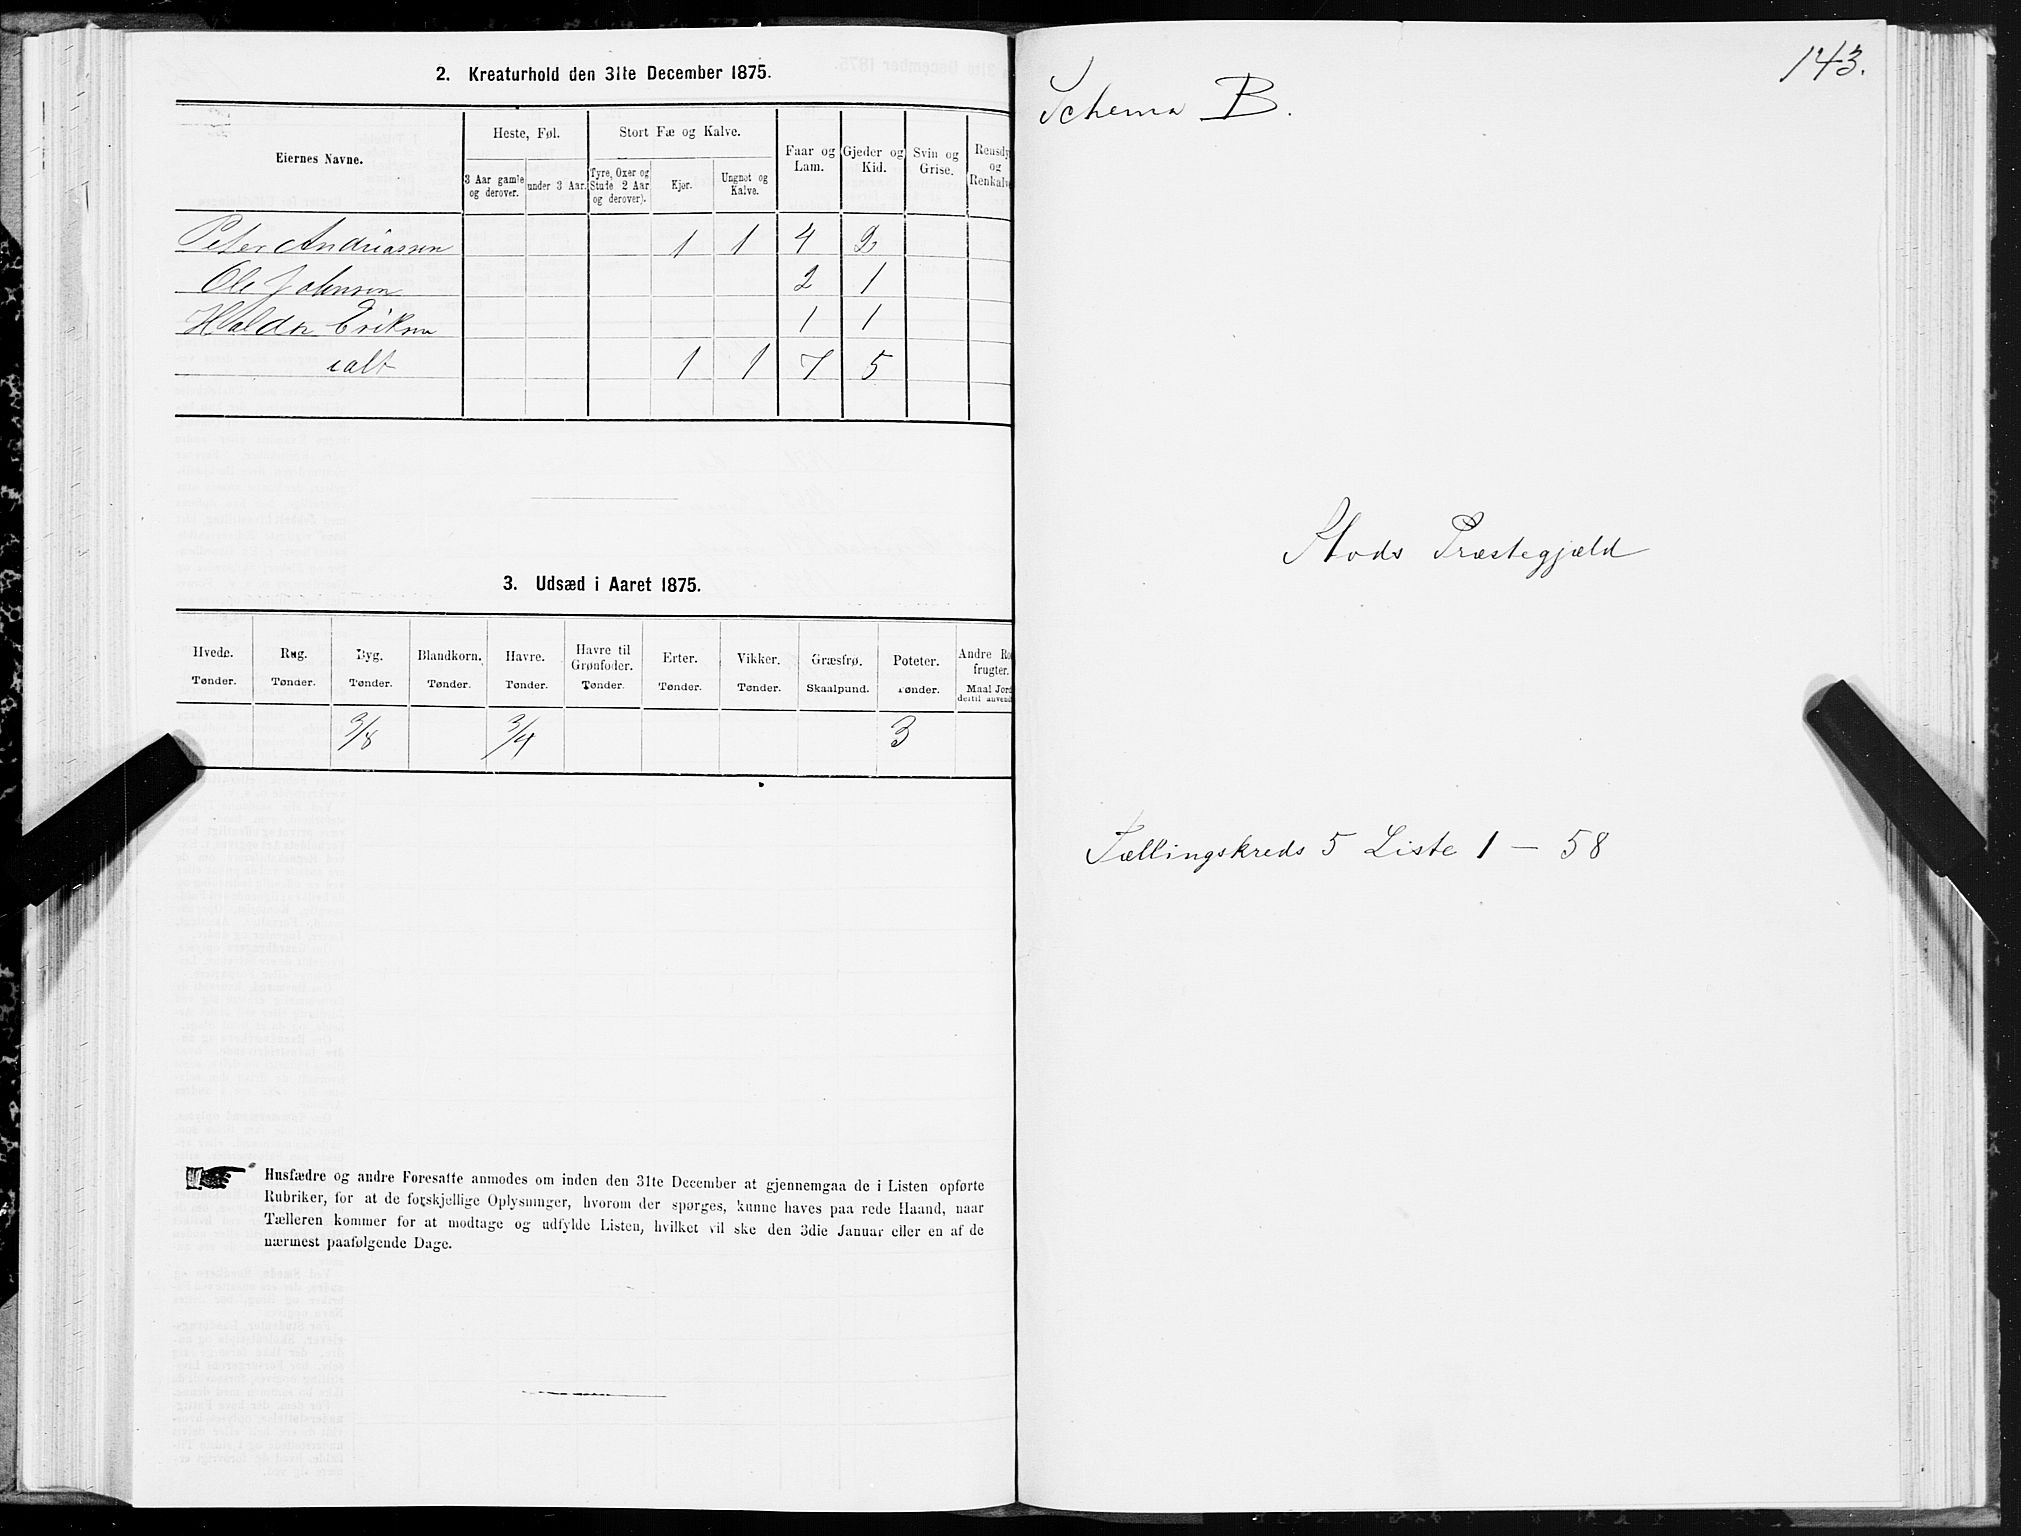 2. Kreaturhold den 31te December 1875.
Eiernes Navne.
Heste, Føl.
Stort Fæ og Kalve.
Faar og Lam.
Gjeder og Kid.
Svin og Grise.
Rensdy
og
Renkalv
3 Aar gamle og derover.
under 3 Aar.
Tyre, Oxer og Stude 2 Aar og derover).
Kjør.
Ungnøt og Kalve.
Peter Andriassen 1 1 4 2
Ole Johnsen 2 1
Haldr Eriksen 1 1
ialt 1 1 7 5
3. Udsæd i Aaret 1875.
Hvede. Rug. Byg. Blandkorn. Havre. Havre til Grønfoder. Erter. Vikker. Græsfrø. Poteter. Andre Ro
frugter.
Tønder. Tønder. Tønder. Tønder. Tønder. Tønder. Tønder. Tønder. Skaalpund. Tønder. Maal Jord
dertil anvend
3/8 3/4 3
Husfædre og andre Foresatte anmodes om inden den 31te December at gjennemgaa de i Listen opførte
Rubriker, for at de forskjellige Oplysninger, hvorom der spørges, kunne haves paa rede Haand, naar
Tælleren kommer for at modtage og udfylde Listen, hvilket vil ske den 3die Januar eller en af de
nærmest paafølgende Dage.
143.
Schema B.
Stods Præstegjæld
Tællingskreds 5 Liste 1 — 58